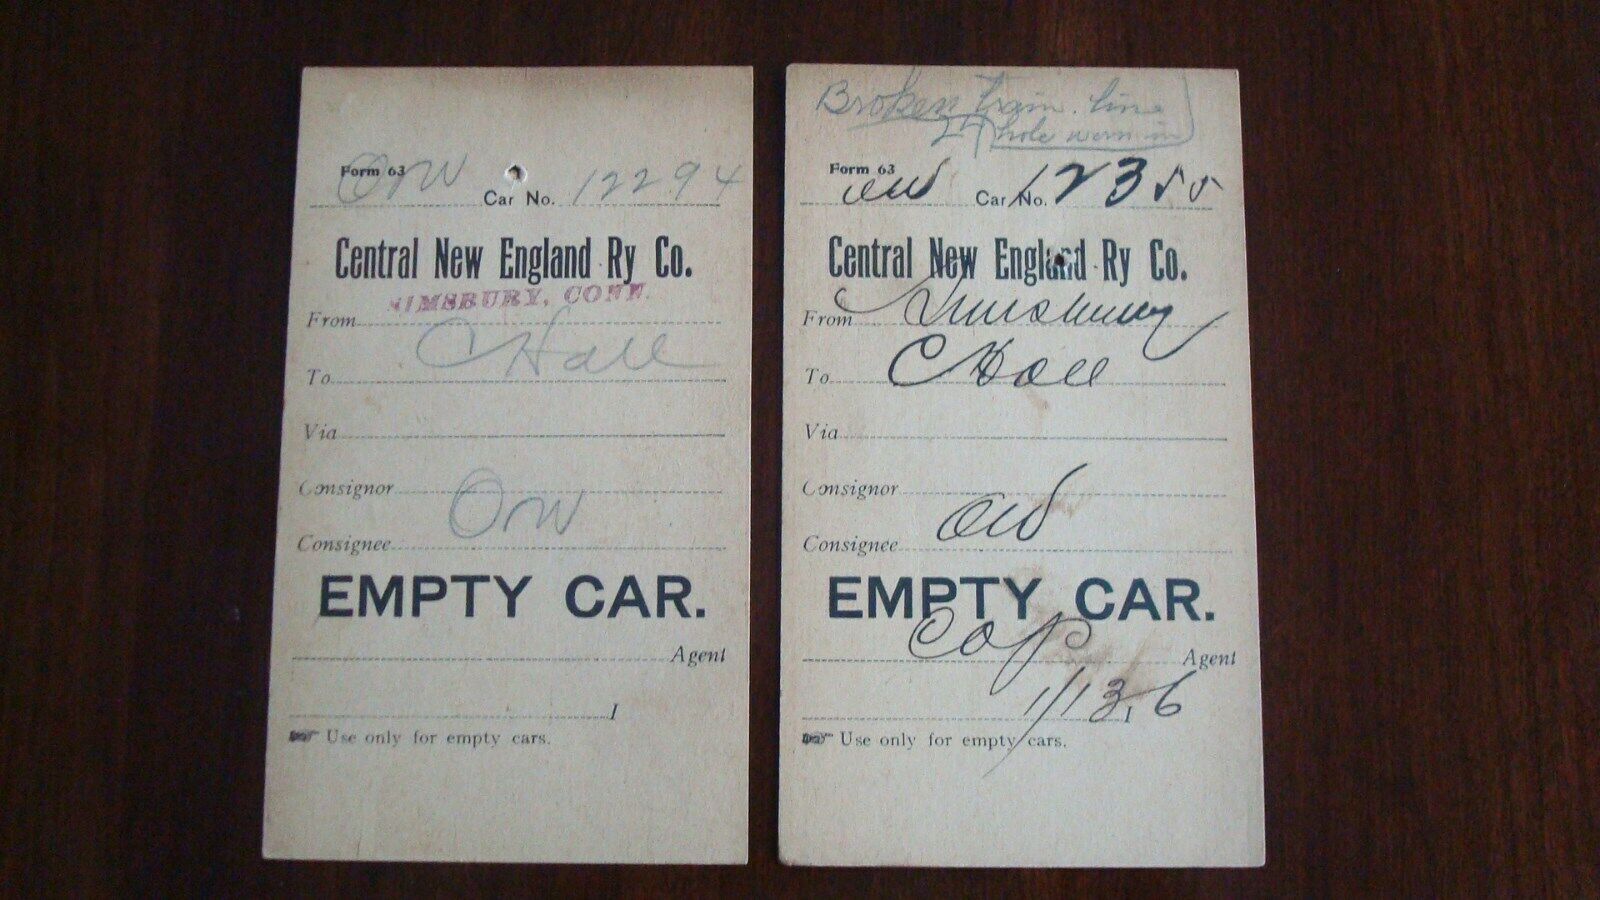 Form 63
O&W Car No. 12294
Central New England Ry Co.
From SIMSBURY, CONN.
To C Hall
Via
Consignor
Consignee OW
EMPTY CAR.
Agent
1
Use only for empty cars.
Broken train line
hole worn in
Form 63
OW Car No. 12355
Central New England Ry Co.
From Simsbury
To C Hall
Via
Consignor
Consignee OW
EMPTY CAR.
Agent
1/13 1 6
Use only for empty cars.